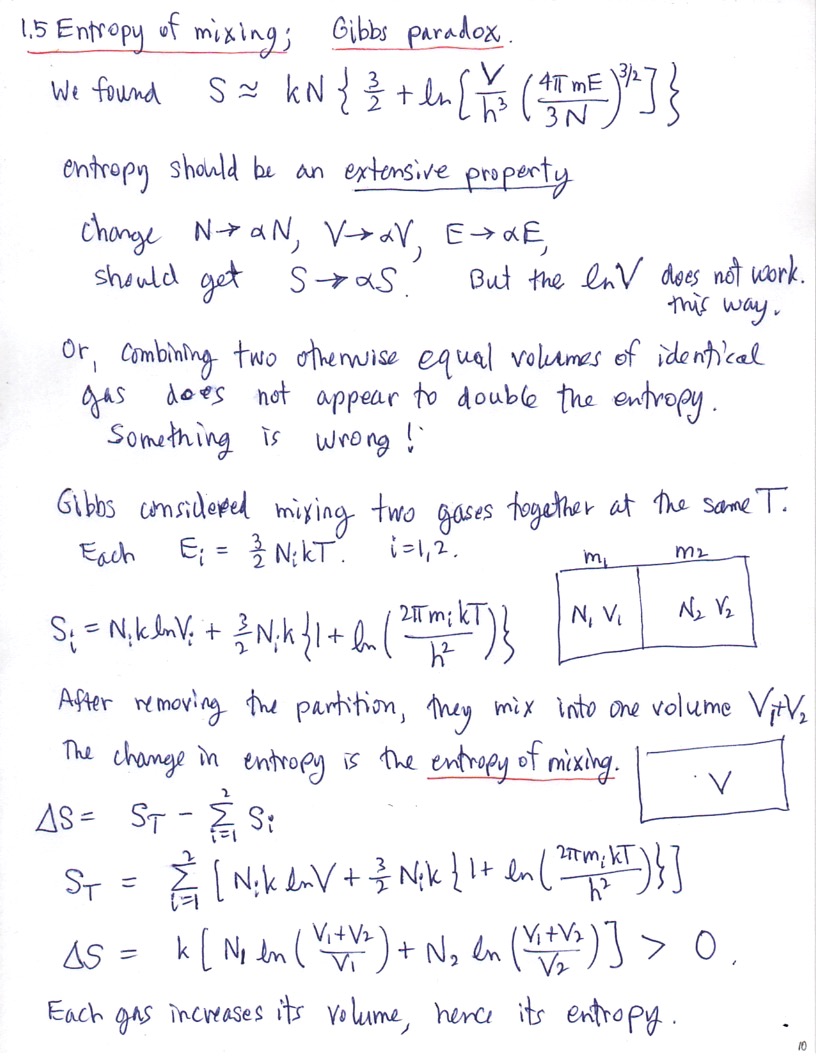 1.5 Entropy of mixing; Gibbs paradox.
We found S ≈ kN { 3/2 + ln [ V/h³ ( 4πmE / 3N )^3/2 ] }
entropy should be an extensive property
Change N → αN, V → αV, E → αE,
should get S → αS. But the lnV does not work.
this way.
Or, combining two otherwise equal volumes of identical
gas does not appear to double the entropy.
Something is wrong!
Gibbs considered mixing two gases together at the same T.
Each E_i = 3/2 N_i kT. i=1,2.
m₁ m₂
N₁ V₁ N₂ V₂
S_i = N_i k ln V_i + 3/2 N_i k { 1 + ln ( 2πm_i kT / h² ) }
After removing the partition, they mix into one volume V₁+V₂
The change in entropy is the entropy of mixing.
V
ΔS = S_T − Σ_{i=1}^{2} S_i
S_T = Σ_{i=1}^{2} [ N_i k ln V + 3/2 N_i k { 1 + ln ( 2πm_i kT / h² ) } ]
ΔS = k [ N₁ ln ( V₁+V₂ / V₁ ) + N₂ ln ( V₁+V₂ / V₂ ) ] > 0.
Each gas increases its volume, hence its entropy.
10